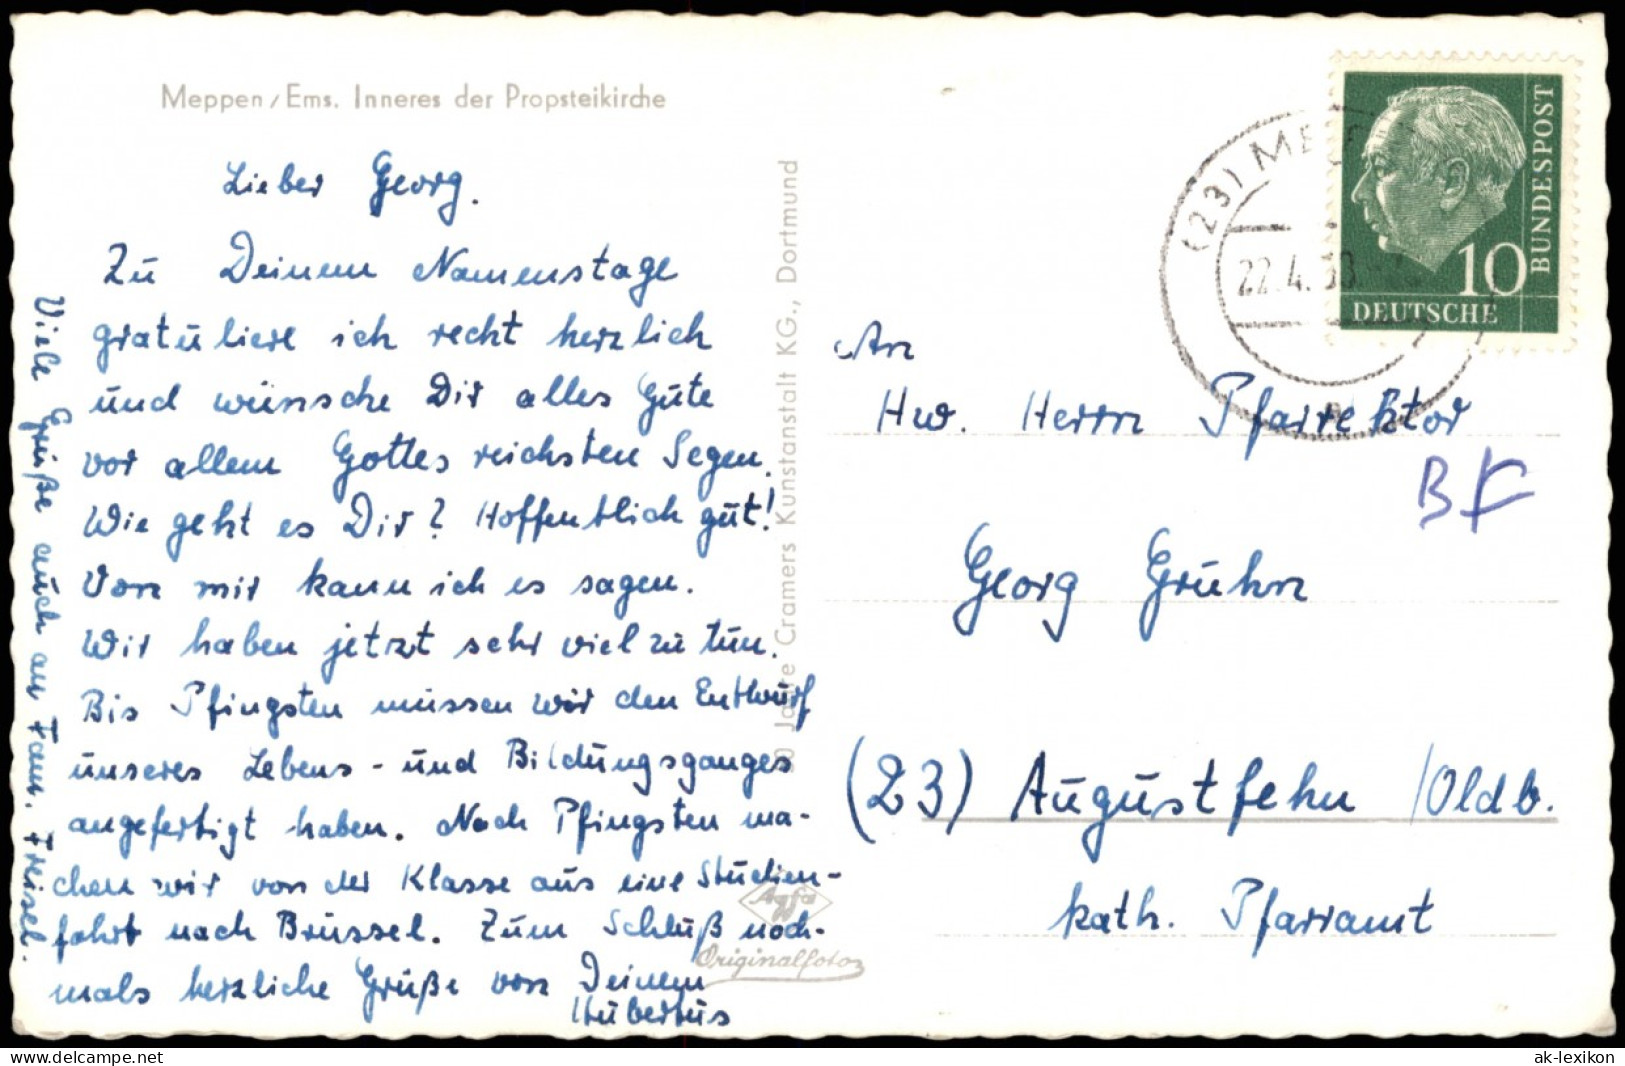 Meppen/Ems. Inneres der Propsteikirche
Lieber Georg.
Zu Deinem Namenstage
gratuliere ich recht herzlich
und wünsche Dir alles Gute
vor allem Gottes reichsten Segen.
Wie geht es Dir? Hoffentlich gut!
Von mir kann ich es sagen.
Wir haben jetzt sehr viel zu tun.
Bis Pfingsten müssen wir den Entwurf
unseres Lebens- und Bildungsganges
angefertigt haben. Nach Pfingsten ma-
chen wir von der Klasse aus eine Studien-
fahrt nach Brüssel. Zum Schluß noch-
mals herzliche Grüße von Deinem
Hubertus
Viele Grüße auch an Fam. Freisel.
50 Jahre Cramers Kunstanstalt KG., Dortmund
Agfa
Originalfoto
(23) ME
22.4.
10
DEUTSCHE
BUNDESPOST
An
Hw. Herrn Pfarrektor
Georg Gruhn
(23) Augustfehn /Oldb.
kath. Pfarramt
the-collection.net
ak-lexikon